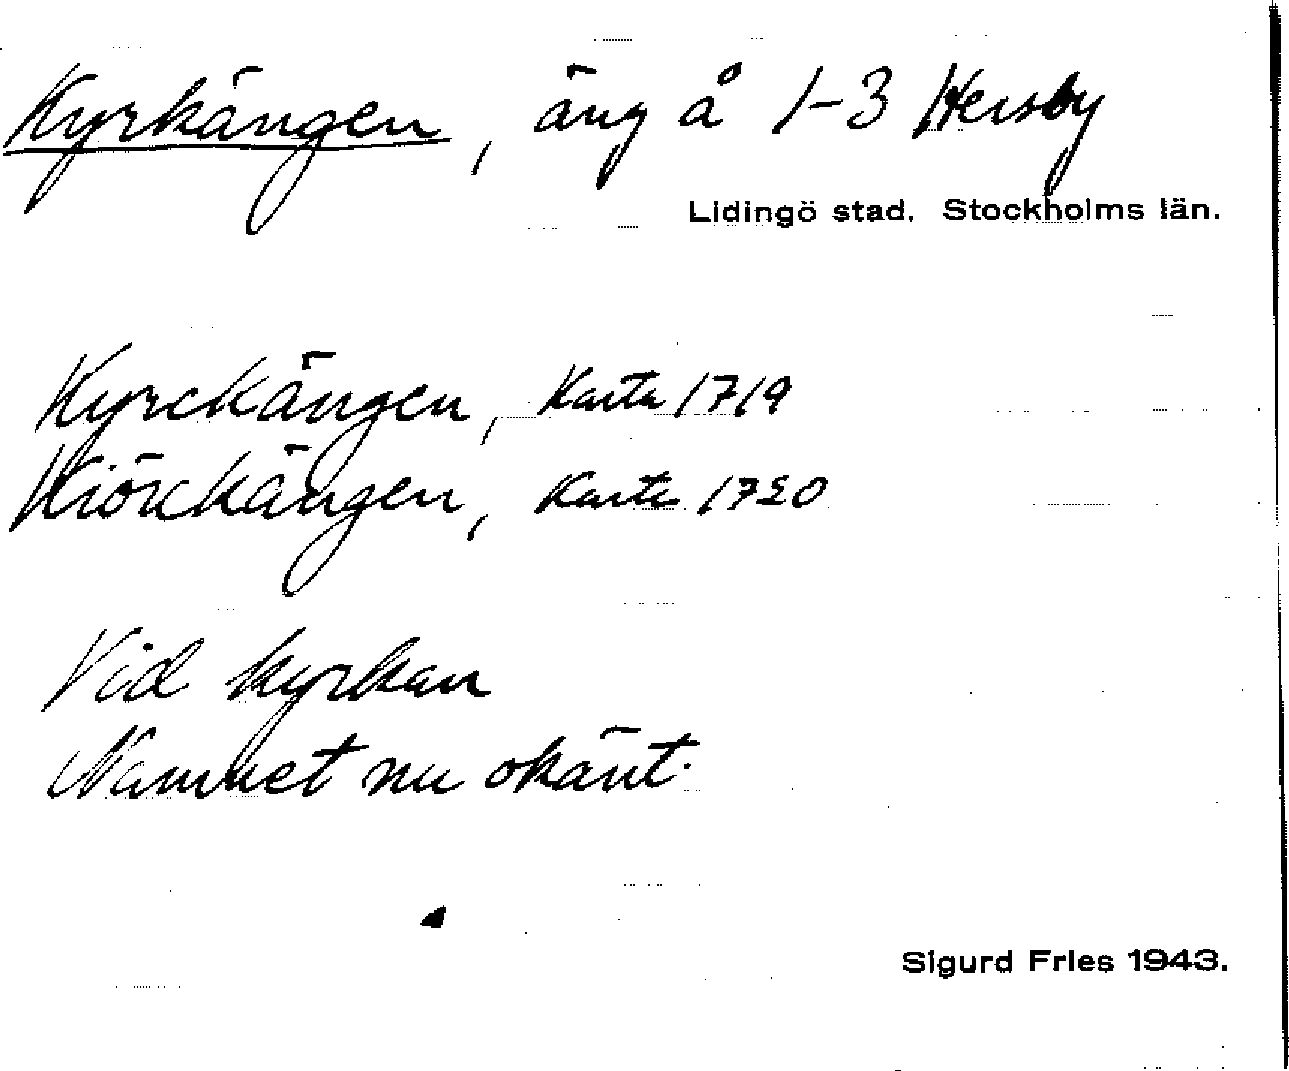 Kyrkängen, äng å 1-3 Hersby
Lidingö stad. Stockholms län.
Kyrckängen, Karta 1719
Kiörckängen, Karta 1720
Vid kyrkan
Namnet nu okänt.
Sigurd Fries 1943.